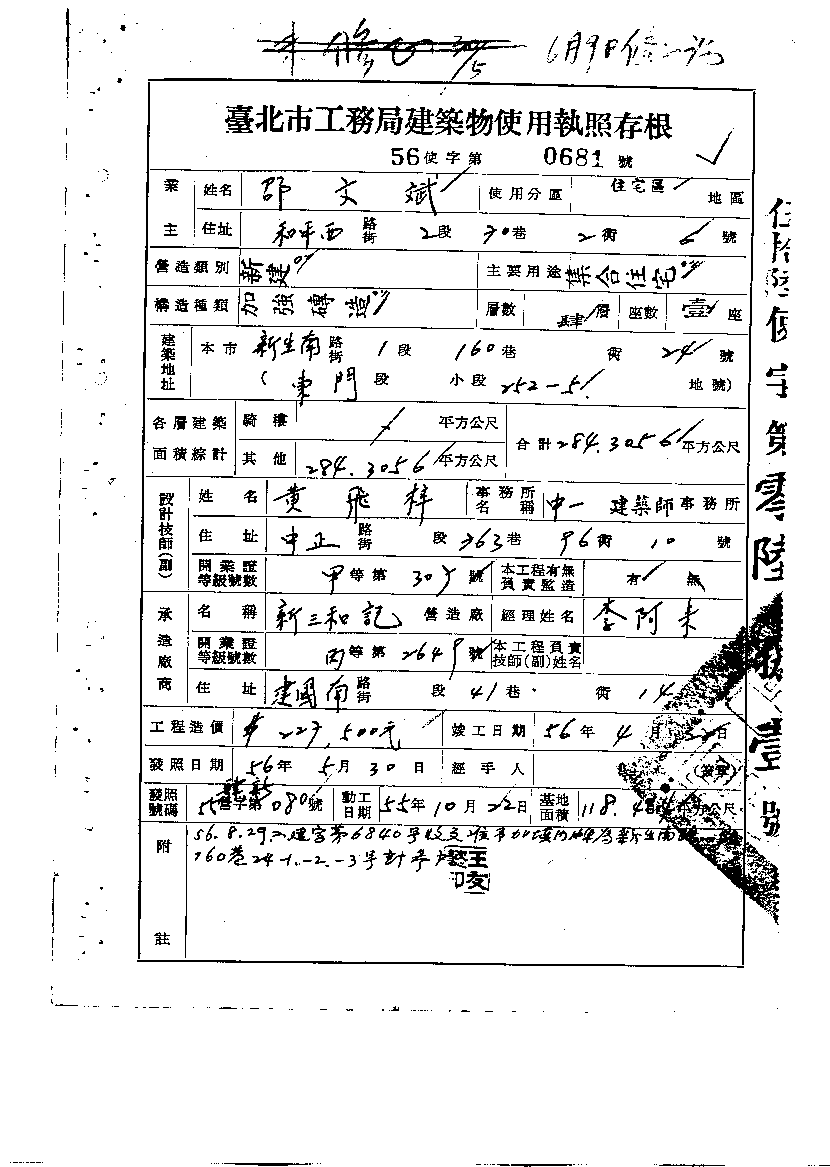 6月9日
臺北市工務局建築物使用執照存根
56使字第 0681 號
業主 姓名 邵文斌 使用分區 住宅區 地區
住址 和平西 路街 2段 30巷 2衖 6號
營造類別 新建 主要用途 集合住宅
構造種類 加強磚造 層數 肆層 座數 壹座
建築地址 本市 新生南 路街 1段 160巷 衖 24號
(東門 段 小段 252-5 地號)
各層建築面積綜計 騎樓 平方公尺 合計 284.3056 平方公尺
其他 284.3056 平方公尺
設計技師(副) 姓名 黃飛梓 事務所名稱 中一 建築師事務所
住址 中正 路街 段 363巷 96衖 10號
開業證等級號數 甲等第 號 本工程有無負責監造 有 無
承造廠商 名稱 新三和記 營造廠 經理姓名 李阿來
開業證等級號數 丙等第 號 本工程負責技師(副)姓名
住址 建國南 路街 段 41巷 衖 14
工程造價 $ 227,500元 竣工日期 56年 4月 日
發照日期 56年 5月 30日 經手人
發照號碼 55 建新 營字第 080號 動工日期 55年 10月 22日 基地面積 118. 平方公尺
附註 56.8.29 建字第6840號
160巷24-1.-2.-3號
伍拾陸使字第零陸捌壹號